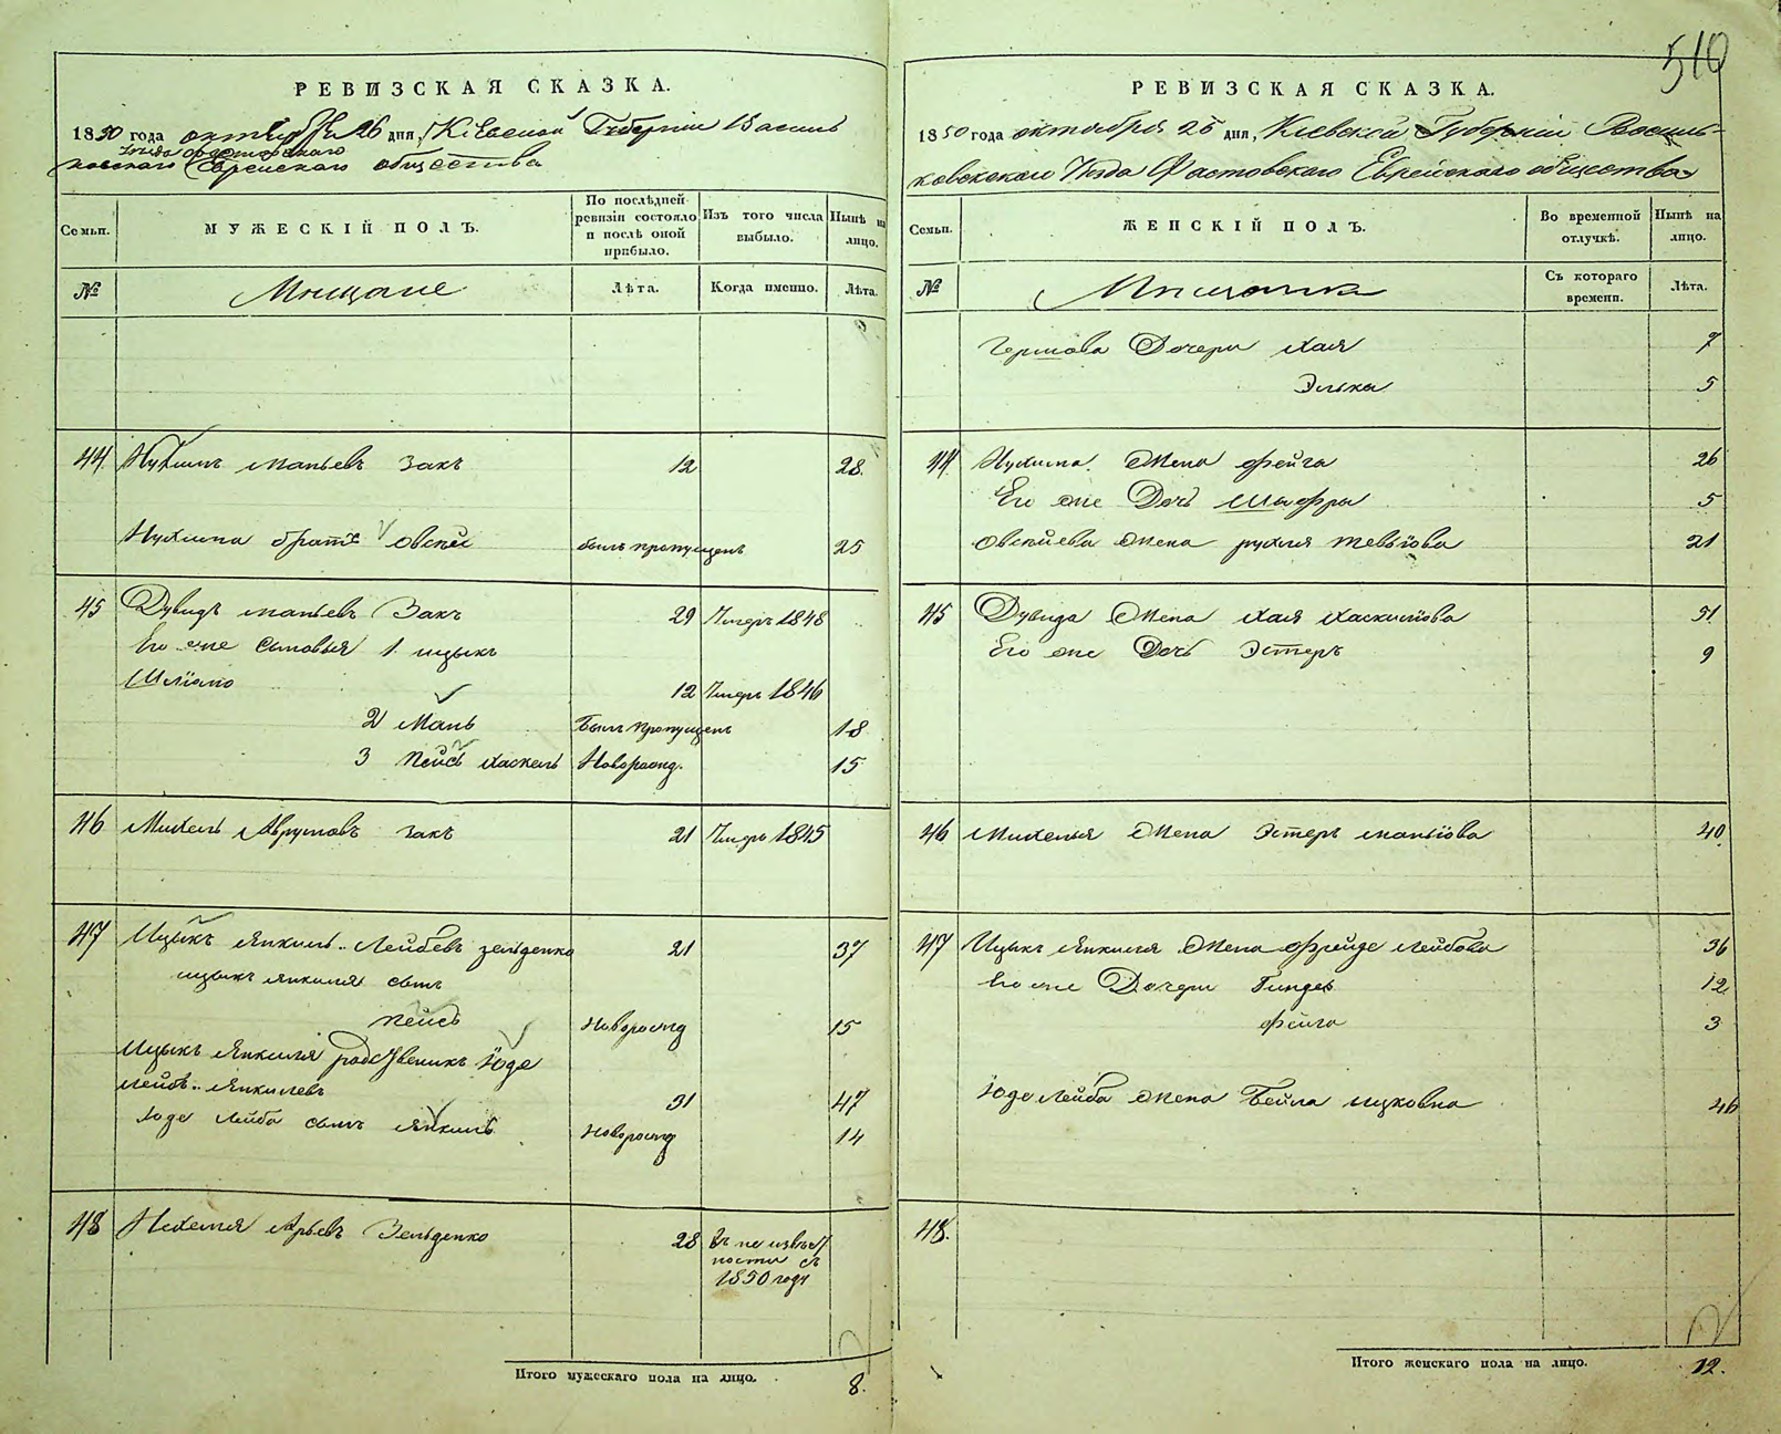 510
РЕВИЗСКАЯ СКАЗКА.
1850 года октября 26 дня, Кіевской Губерніи Василь
ковскаго уезда Фастовскаго Еврейскаго общества
Семьи.
МУЖЕСКІЙ ПОЛЪ.
По послѣдней ревизіи состояло и послѣ оной прибыло.
Изъ того числа выбыло.
Нынѣ на лицо.
№
Мещане
Лѣта.
Когда именно.
Лѣта.
44 Нухимъ Маньевъ Закъ 12 28
Нухима братъ Овсей былъ пропущенъ 25
45 Дувидъ Маньевъ Закъ 29 Умеръ 1848
Его же сыновья 1 Ицыкъ
Шліомо 12 Умеръ 1846
2 Мань Былъ пропущенъ 18
3 Пейсъ Хаскель Новорожд. 15
46 Михель Аврумовъ Закъ 21 Умеръ 1845
47 Ицыкъ Янкель Лейбевъ Зельденко 21 37
Ицыкъ Янкеля сынъ
Пейсъ Новорожд 15
Ицыкъ Янкеля родственикъ Юде
Лейбъ Янкилевъ 31 47
Юде Лейба сынъ Янкель Новорожд 14
48 Нехемія Арьевъ Зельденко 28 въ не извѣст
ности съ
1850 году
Итого мужескаго пола на лицо. 8.
РЕВИЗСКАЯ СКАЗКА.
1850 года октября 26 дня, Кіевской Губерніи Василь-
ковскаго Уезда Фастовскаго Еврейскаго общества
Семьи.
ЖЕНСКІЙ ПОЛЪ.
Во временной отлучкѣ.
Нынѣ на лицо.
№
Мещанки
Съ котораго времени.
Лѣта.
Гершова Дочери Хая 7
Элька 5
44 Нухима Жена Фейга 26
Его же Дочь Шифра 5
Овсеева Жена Рухля Тевьіова 21
45 Дувида Жена Хая Хаскиліова 51
Его же Дочь Эстеръ 9
46 Михеля Жена Эстеръ Маньіова 40
47 Ицыкъ Янкеля Жена Фрейде Лейбова 36
Его же Дочери Гинде 12
Фейга 3
Юде Лейба Жена Бейла Ицковна 46
48.
Итого женскаго пола на лицо. 12.